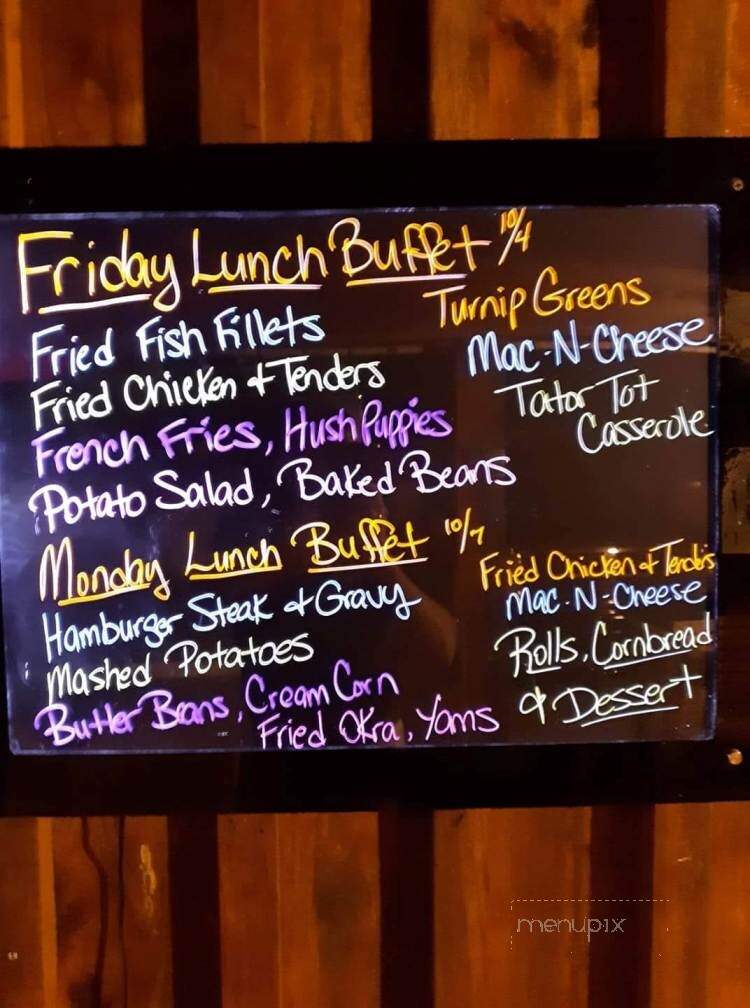 Friday Lunch Buffet 10/4
Fried Fish Fillets
Fried Chicken & Tenders
French Fries, Hush Puppies
Potato Salad, Baked Beans
Turnip Greens
Mac-N-Cheese
Tator Tot
Casserole
Monday Lunch Buffet 10/7
Hamburger Steak & Gravy
Mashed Potatoes
Butter Beans, Cream Corn
Fried Okra, Yams
Fried Chicken & Tenders
Mac-N-Cheese
Rolls, Cornbread
& Dessert
menupix